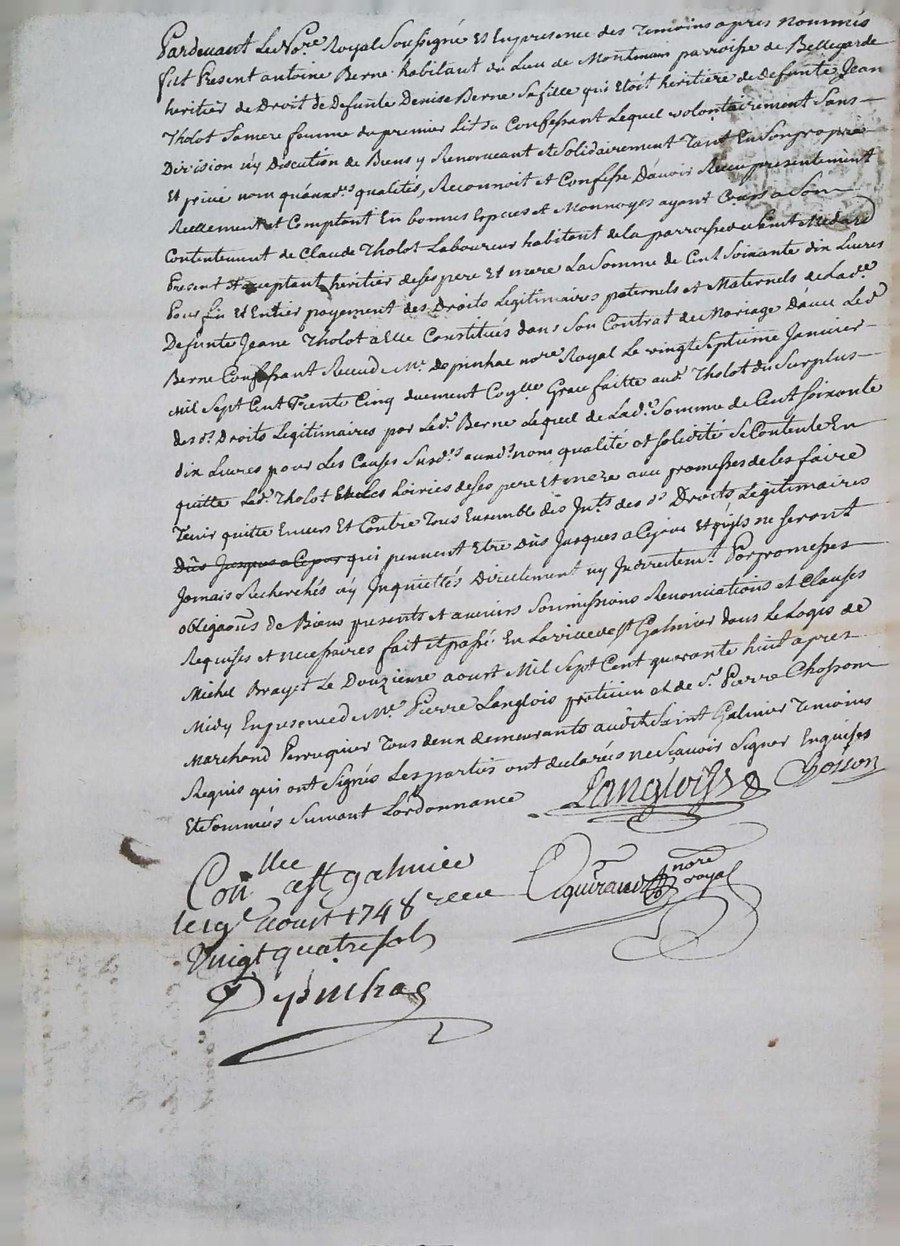 Pardevant Le No.re Royal Soussigné et En presence des Temoins apres nommés
fut Present antoine Berne habitant du Lieu de Montmain parroisse de Bellegarde
heritier de Droit de defunte Denise Berne Sa fille qui etoit heritiere de defunte Jean
Tholot Sa mere femme du premier lit du Confessant Lequel volontairement Sans
Division ny Discution de Biens y Renonceant et Solidairement Tant En Son propre
Et privé nom qu'aud.s qualités, Reconnoit et Confesse D'avoir Receu presentement
Reellement et Comptant En bonnes Espces et Monnoyes ayant Cours a Son
Contentement de Claude Tholot Laboureur habitant de la parroisse de Saint Medard
Present et acceptant heritier de ses pere Et mere La Somme de Cent Soixante dix Livres
Pour fin et Entier payement des Droits Legitimaires paternels et Maternels de Lad.e
Defunte Jeane Tholot a Elle Constitués dans Son Contrat de Mariage D'avec Le d.t
Berne Confessant Receu de M.e Depinhac no.re Royal Le vingt Septieme Janvier
Mil Sept Cent Trente Cinq duement Co.lle Grace faitte aud. Tholot du Surplus
des d. Droits Legitimaires par Led. Berne Lequel de Lad. Somme de Cent Soixante
dix Livres pour Les Causes Susd.s aud. nom qualité et Solidité Se Contente En
quitte Led. Tholot et Les hoiries de Ses pere Et mere aux promesses de Les faire
Tenir quitte Envers Et Contre Tous Ensemble des Int.s des d. Droits Legitimaires
Dûs Jusques a Ce jour qui peuvent Etre Dûs Jusques a Ce jour Et qu'ils ne Seront
Jamais Recherchés ny Inquiettés Directement ny Indirectem.t Par promesses
obligaons de Biens presents et avenirs Soumissions Renonciations et Clauses
Requises et necessaires fait et passé En La ville de S.t Galmier dans Le Logis de
Michel Brayet Le Douzieme aoust Mil Sept Cent quarante huit apres
Midy En presence de M.e Pierre Langlois praticien et de S.r Pierre Chosson
Marchand Perruquier Tous deux demeurants audit Saint Galmier Temoins
Requis qui ont Signés Les parties ont declarés ne Sçavoir Signer Enquises
Et Sommées Suivant Lordonnance
Langlois Chosson
Con.lle a St galmier
le 19 aoust 1748 receu
Vingt quatre sols
Depinhac
nore royal